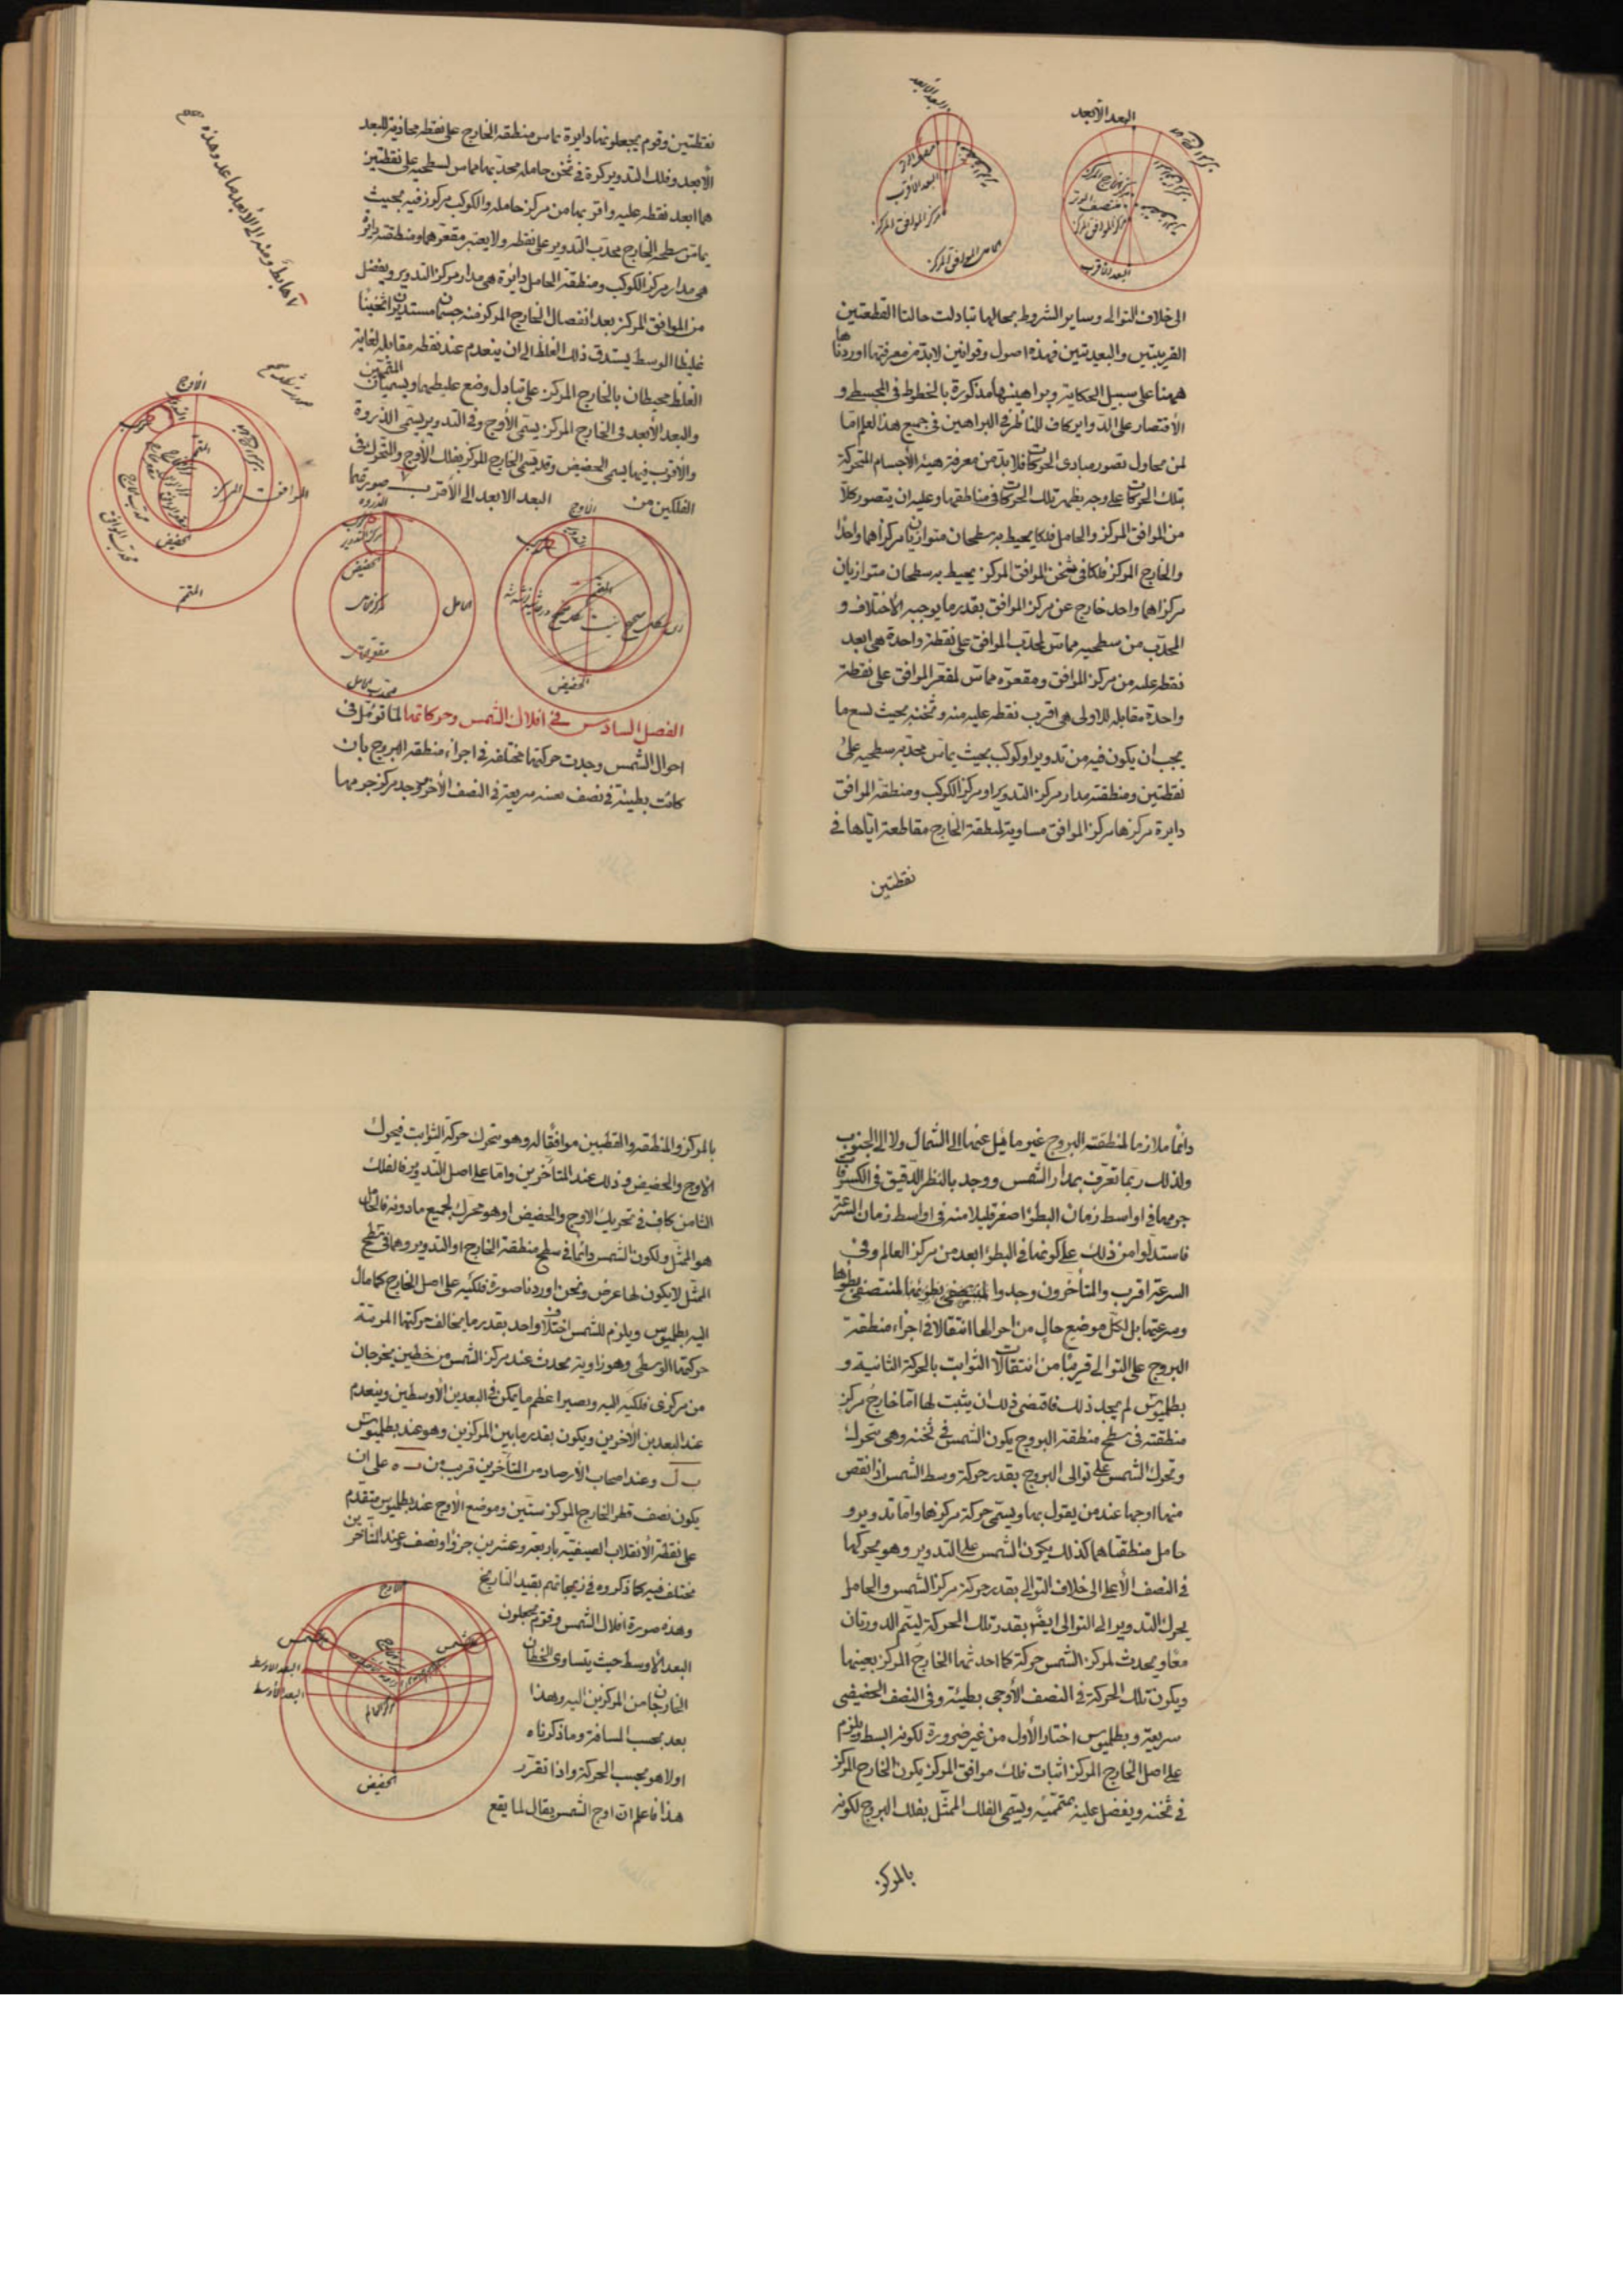 البعد الأبعد
البعد الأقرب
مركز الموافق المركز
البعد الأبعد
مركز الخارج المركز
منتصف الوتر
مركز الموافق المركز
البعد الأقرب
الى خلاف التوالى وساير الشروط بحالها تبادلت حالتا القطعتين
القريبتين والبعيدتين فهذه اصول وقوانين لابد من معرفتها اوردناها
ههنا على سبيل الحكاية وبراهينها مذكورة بالخطوط فى المجسطى و
الأقتصار على الدواير كاف للناظر فى البراهين فى جميع هذا العلم امّا
لمن يحاول تصور مبادى الحركات فلا بد من معرفة هيئة الأجسام المتحركة
بتلك الحركات على وجه يظهر تلك الحركات فى مناطقها وعليه ان يتصور كلا
من الموافق المركز والحامل فلكا يحيط به سطحان متوازيان مركزاهما واحدا
والخارج المركز فلكا فى ثخن الموافق المركز يحيط به سطحان متوازيان
مركزاهما واحد خارج عن مركز الموافق بقدر ما يوجبه الأختلاف و
المحدب من سطحيه مماس لمحدب الموافق على نقطة واحدة هى ابعد
نقطة عليه من مركز الموافق ومقعره مماس لمقعر الموافق على نقطة
واحدة مقابلة للاولى هى اقرب نقطة عليه منه وثخنه بحيث يسع ما
يجب ان يكون فيه من تدوير او كوكب بحيث يماس محدبه سطحيه على
نقطتين ومنطقته مدار مركز التدوير او مركز الكوكب ومنطقة الموافق
دايرة مركزها مركز الموافق مساوية لمنطقة الخارج مقاطعة اياها فى
نقطتين
نقطتين وقوم يجعلونها دايرة تماس منطقة الخارج على نقطة محاذية للبعد
الأبعد وفلك التدوير كرة فى ثخن حامله محدبها مماس لسطحيه على نقطتين
هما ابعد نقطة عليه واقربها من مركز حامله والكوكب مركوز فيه بحيث
يماس سطحه الخارج محدب التدوير على نقطة ولا يعتبر مقعرهما ومنطقته دايرة
هى مدار مركز الكوكب ومنطقة الحامل دائرة هى مدار مركز التدوير ويفضل
من الموافق المركز بعد انفصال الخارج المركز منه جسمان مستديران ثخينا
غليظا الوسط يستدق ذلك الغلظ الى ان ينعدم عند نقطة مقابلة لغاية
الغلظ محيطان بالخارج المركز على تبادل وضع غليظيهما ويسميان المتممين
والبعد الأبعد فى الخارج المركز يسمى الأوج وفى التدوير يسمى الذروة
والأقرب فيهما يسمى الحضيض وقد يسمى الخارج المركز بفلك الأوج والمتحرك فى
الفلكين من البعد الابعد الى الأقرب صورتهما
هابطا ومنه الى الأبعد صاعدا وهذه صح
الأوج
المتمم
الموافق المركز
الحضيض
المتمم
الذروة
مركز التدوير
الحضيض
الحامل
الأوج
المتمم
الحضيض
الفصل السادس فى افلاك الشمس وحركاتها لما تؤمل فى
احوال الشمس وجدت حركتها مختلفة فى اجزاء منطقة البروج بان
كانت بطيئة فى نصف بعينه سريعة فى النصف الأخر ووجد مركز جرمها
دائما ملازما لمنطقة البروج غير مائل عنها الى الشمال ولا الى الجنوب
ولذلك ربما تعرف بمدار الشمس ووجد بالنظر الدقيق فى الكسوفات
جرمها فى اواسط زمان البطؤ اصغر قليلا منه فى اواسط زمان السرعة
فاستدلوا من ذلك على كونها فى البطؤ ابعد من مركز العالم وفى
السرعة اقرب والمتأخرون وجدوا لمنتصفى بطؤها
وسرعتها بل لكل موضع حال من احوالها انتقالا فى اجزاء منطقة
البروج على التوالى قريبا من انتقالات الثوابت بالحركة الثانية و
بطلميوس لم يجد ذلك فاقتضى ذلك ان يثبت لها اما خارج مركز
منطقته فى سطح منطقة البروج يكون الشمس فى ثخنه وهى تتحرك
وتحرك الشمس على توالى البروج بقدر حركة وسط الشمس اذا نقص
منها اوجها عند من يقول بها ويسمى حركة مركزها واما تدوير و
حامل منطقتاهما كذلك يكون الشمس على التدوير وهو يحركها
فى النصف الأعلى الى خلاف التوالى بقدر حركة مركز الشمس والحامل
يحرك التدوير الى التوالى ايضا بقدر تلك الحركة ليتم الدورتان
معا ويحدث لمركز الشمس حركة كما احدثها الخارج المركز بعينها
ويكون تلك الحركة فى النصف الأوجى بطيئة وفى النصف الحضيضى
سريعة وبطلميوس اختار الأول من غير ضرورة لكونه ابسط ويلزم
على اصل الخارج المركز اثبات فلك موافق المركز يكون الخارج المركز
فى ثخنه ويفضل عليه بمتمميه ويسمى الفلك الممثل بفلك البروج لكونه
بالمركز
بالمركز والمنطقة والقطبين موافقا له وهو يتحرك حركة الثوابت فيحرك
الاوج والحضيض وذلك عند المتأخرين واما على اصل التدوير فالفلك
الثامن كاف فى تحريك الاوج والحضيض اذ هو محرك لجميع ما دونه فالحامل
هو الممثل ولكون الشمس دائما فى سطح منطقة الخارج او التدوير وهما فى سطح
الممثل لا يكون لها عرض ونحن اوردنا صورة فلكيه على اصل الخارج كما مال
اليه بطلميوس ويلزم للشمس اختلاف واحد بقدر ما يخالف حركتها المرئية
حركتها الوسطى وهو زاوية تحدث عند مركز الشمس من خطين يخرجان
من مركزى فلكيه اليه ويصير اعظم ما يمكن فى البعدين الأوسطين وينعدم
عند البعدين الأخرين ويكون بقدر ما بين المركزين وهو عند بطلميوس
ب ل وعند اصحاب الأرصاد من المتأخرين قريب من ب ه على ان
يكون نصف قطر الخارج المركز ستين وموضع الأوج عند بطلميوس متقدم
على نقطة الأنقلاب الصيفية باربعة وعشرين جزؤا ونصف وعند المتأخرين
مختلف فيه كما ذكروه فى زيجاتهم بقيد التاريخ
وهذه صورة افلاك الشمس وقوم يجعلون
البعد الأوسط حيث يتساوى الخطان
الخارجان من المركزين اليه وهذا
بعد بحسب المسافة وما ذكرناه
اولا هو بحسب الحركة واذا تقرر
هذا فاعلم ان اوج الشمس يقال لما يقع
الأوج
الشمس
الشمس
البعد الاوسط
البعد الأوسط
مركز العالم
الحضيض